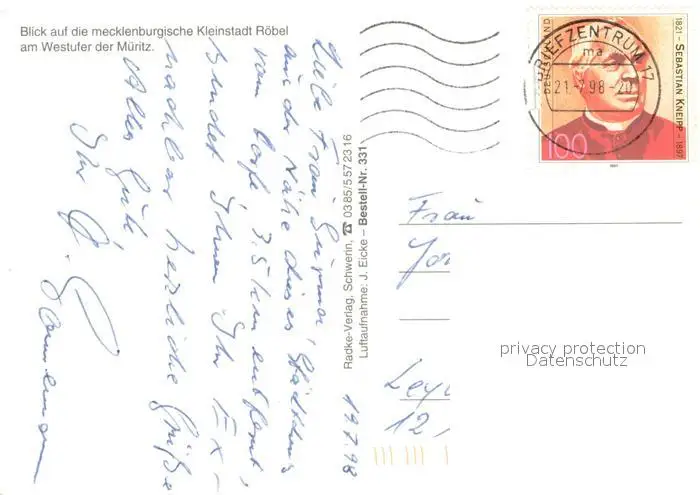 Blick auf die mecklenburgische Kleinstadt Röbel
am Westufer der Müritz.
19.7.98
Liebe Frau
aus der Nähe dieses Städtchens
vom Dorfe 7.5 km entfernt,
sendet Ihnen Ihr Ex-
nachbar herzliche Grüße
Alles Gute
Ihr G.
Radke-Verlag, Schwerin, ☎ 0385/5572316
Luftaufnahme: J. Eicke – Bestell-Nr. 331
BRIEFZENTRUM 17
ma
21.-7.98-20
DEUTSCHLAND
1821 – SEBASTIAN KNEIPP – 1897
100
1997
Frau
privacy protection
Datenschutz